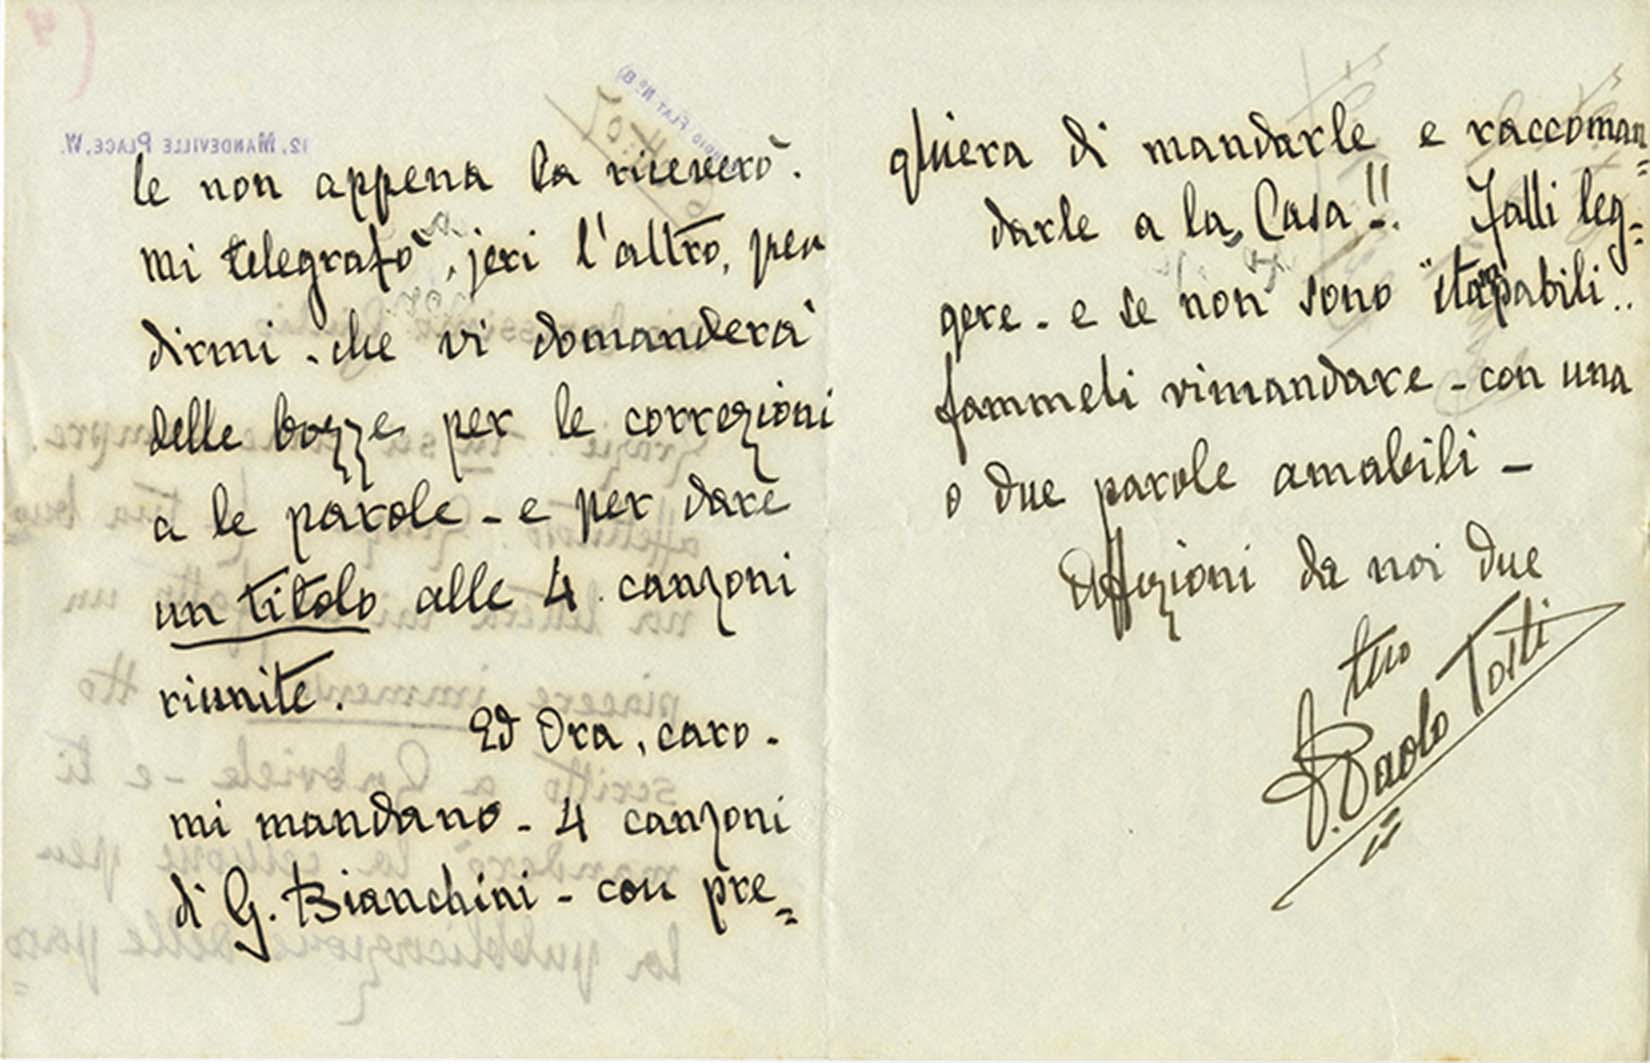 le non appena la riceverò.
mi telegrafò, jeri l'altro, per
dirmi - che vi domanderà
delle bozze per le correzioni
a le parole - e per dare
un titolo alle 4 canzoni
riunite.
Ed Ora, caro -
mi mandano - 4 canzoni
di G. Bianchini - con pre=
ghiera di mandarle e raccoman=
darle a la Casa!!. Falli leg=
gere - e se non sono "stampabili..
fammeli rimandare - con una
o due parole amabili -
Affezioni da noi due
tuo
F. Paolo Tosti
12, MANDEVILLE PLACE, W.